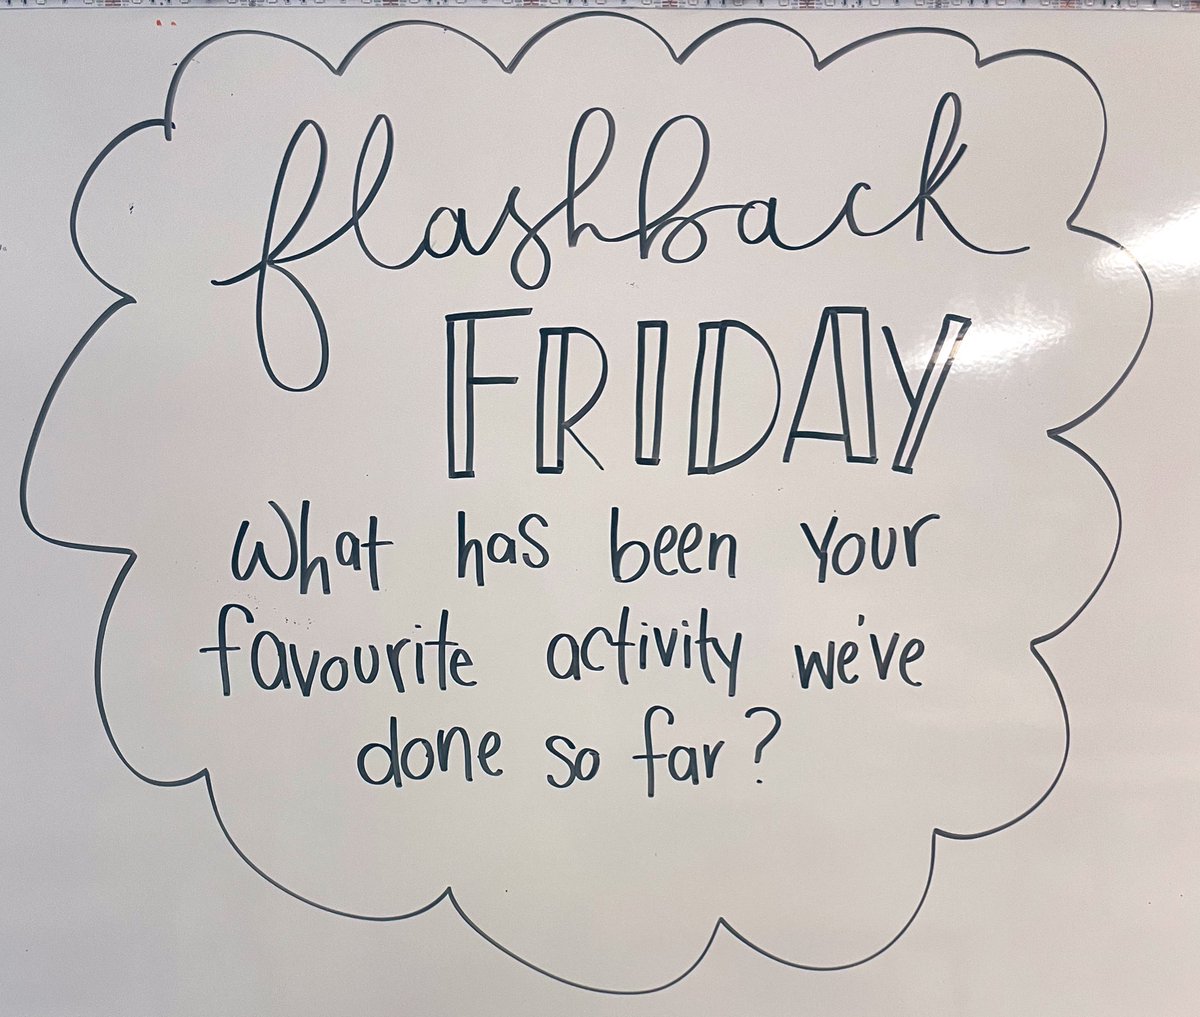 flashback
FRIDAY
What has been your
favourite activity we've
done so far?